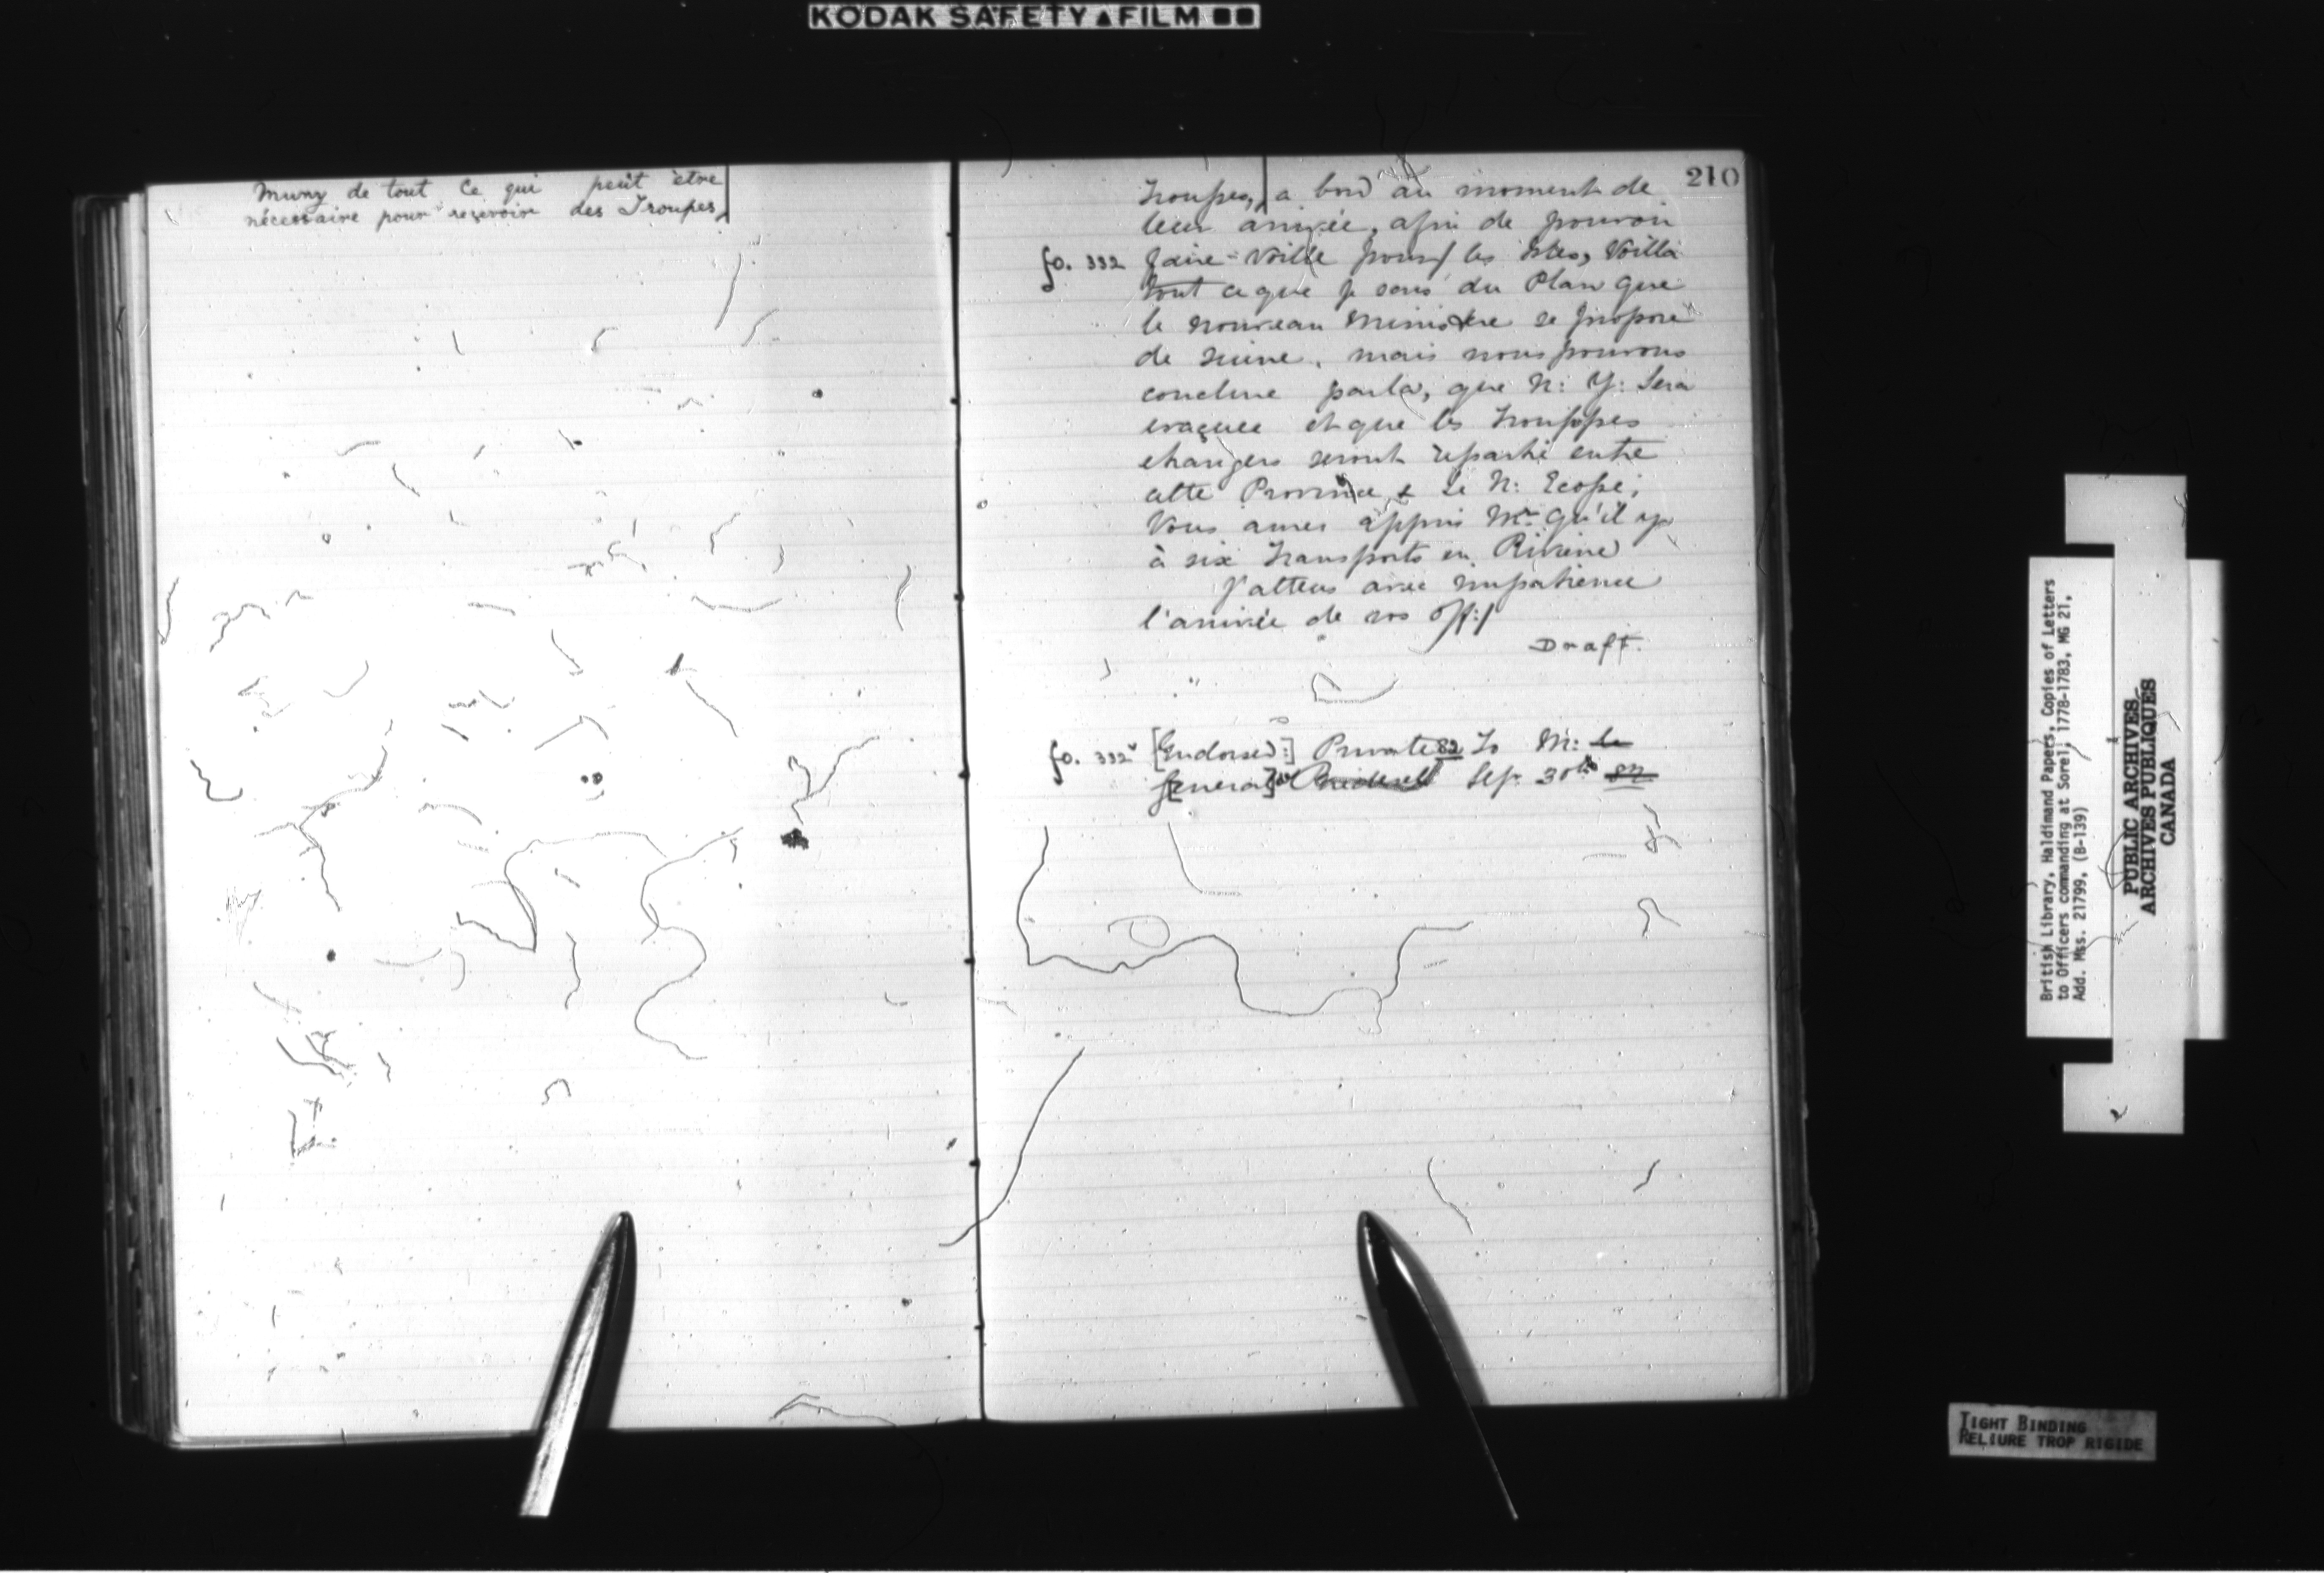 KODAK SAFETY FILM
muny de tout ce qui peut être
nécessaire pour reçevoir des Troupes,
210
Troupes, a bord au moment de
leur arrivée, afin de pouvoir
fo. 332 faire-voille pour les Isles, Voilla
tout ce que je sais du Plan que
le nouveau Ministre se propose
de suivre, mais nous pouvons
conclure parla, que N: Y: Sera
evaçuee et que les Trouppes
etrangers seront reparti entre
cette Province & le N: Ecosse;
Vous aures appris Mr. qu'il y
à six Transports en Riviere
J'attens avec impatience
l'arrivée de vos off:/
Draft.
fo. 332v [Endorsed:] Private 82 To M: le
General Riedesel Sep 30th 82
British Library, Haldimand Papers, Copies of Letters
to Officers commanding at Sorel, 1778-1783, MG 21,
Add. Mss. 21799, (B-139)
PUBLIC ARCHIVES
ARCHIVES PUBLIQUES
CANADA
TIGHT BINDING
RELIURE TROP RIGIDE